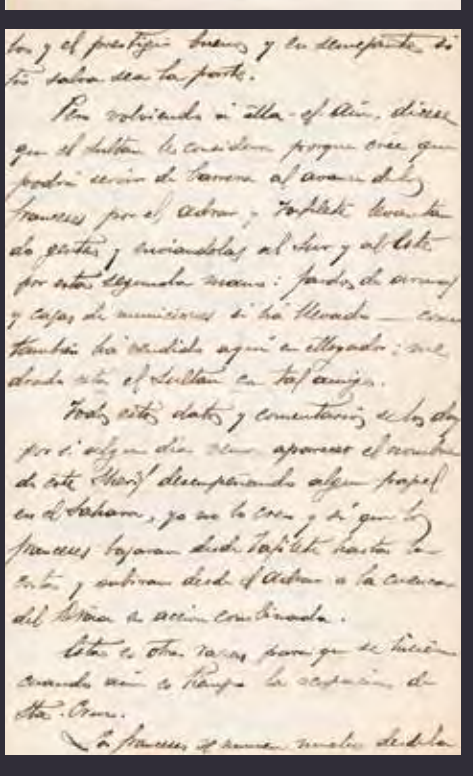 los y el prestigio bueno y en semejante si
tio salva sea la parte.
Pero volviendo a Ma-el-Aïn, dicese
que el Sultan le considera porque cree que
podrá servir de barrera al avance de los
franceses por el Adrar y Tafilete levantan
do gentes y enviandolas al Sur y al Este
por esta segunda mano: fardos de armas
y cajas de municiones si ha llevado — como
tambien ha vendido aqui en Mogador;
esta el Sultan en tal amigo.
Todos estos datos y comentarios se los doy
por si algun dia aparecer el nombre
de este Sherif desempeñando algun papel
en el Sahara, yo no lo creo y sí que los
franceses bajaran desde Tafilete hasta la
costa y subiran desde el Adrar a la cuenca
del Draa en acción combinada.
Esta es otra razon para que se hiciera
cuando aún es tiempo la ocupación de
Sta. Cruz.
Los franceses se mueven mucho desde la